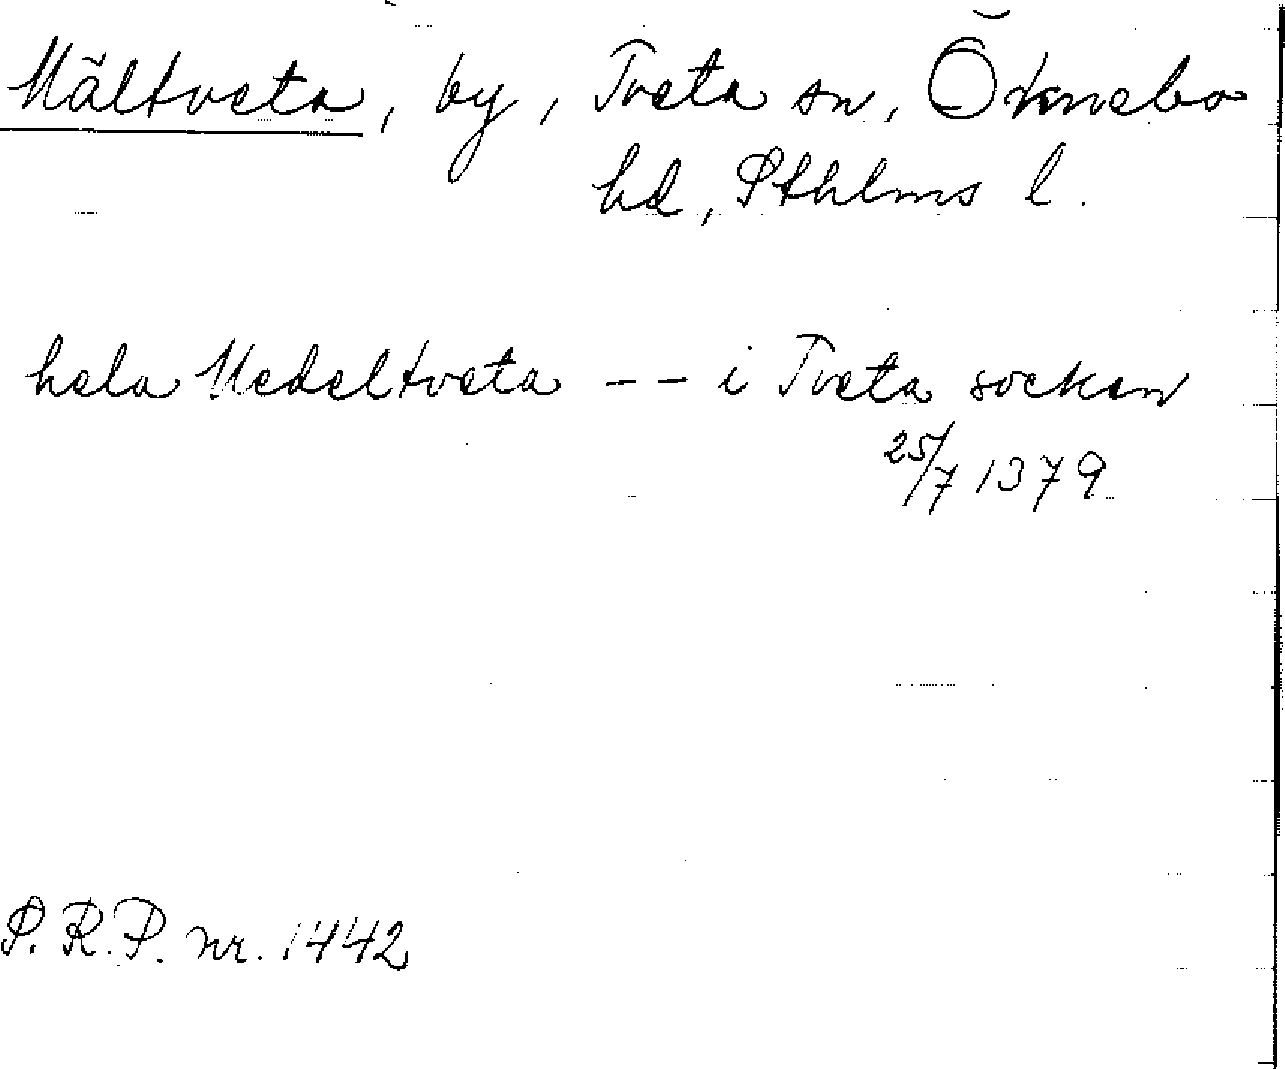 Mältveta, by, Tveta sn, Öknebo
hd, Sthlms l.
hela Medeltveta -- i Tveta socken
25/7 1379
S.R.P. nr. 1442